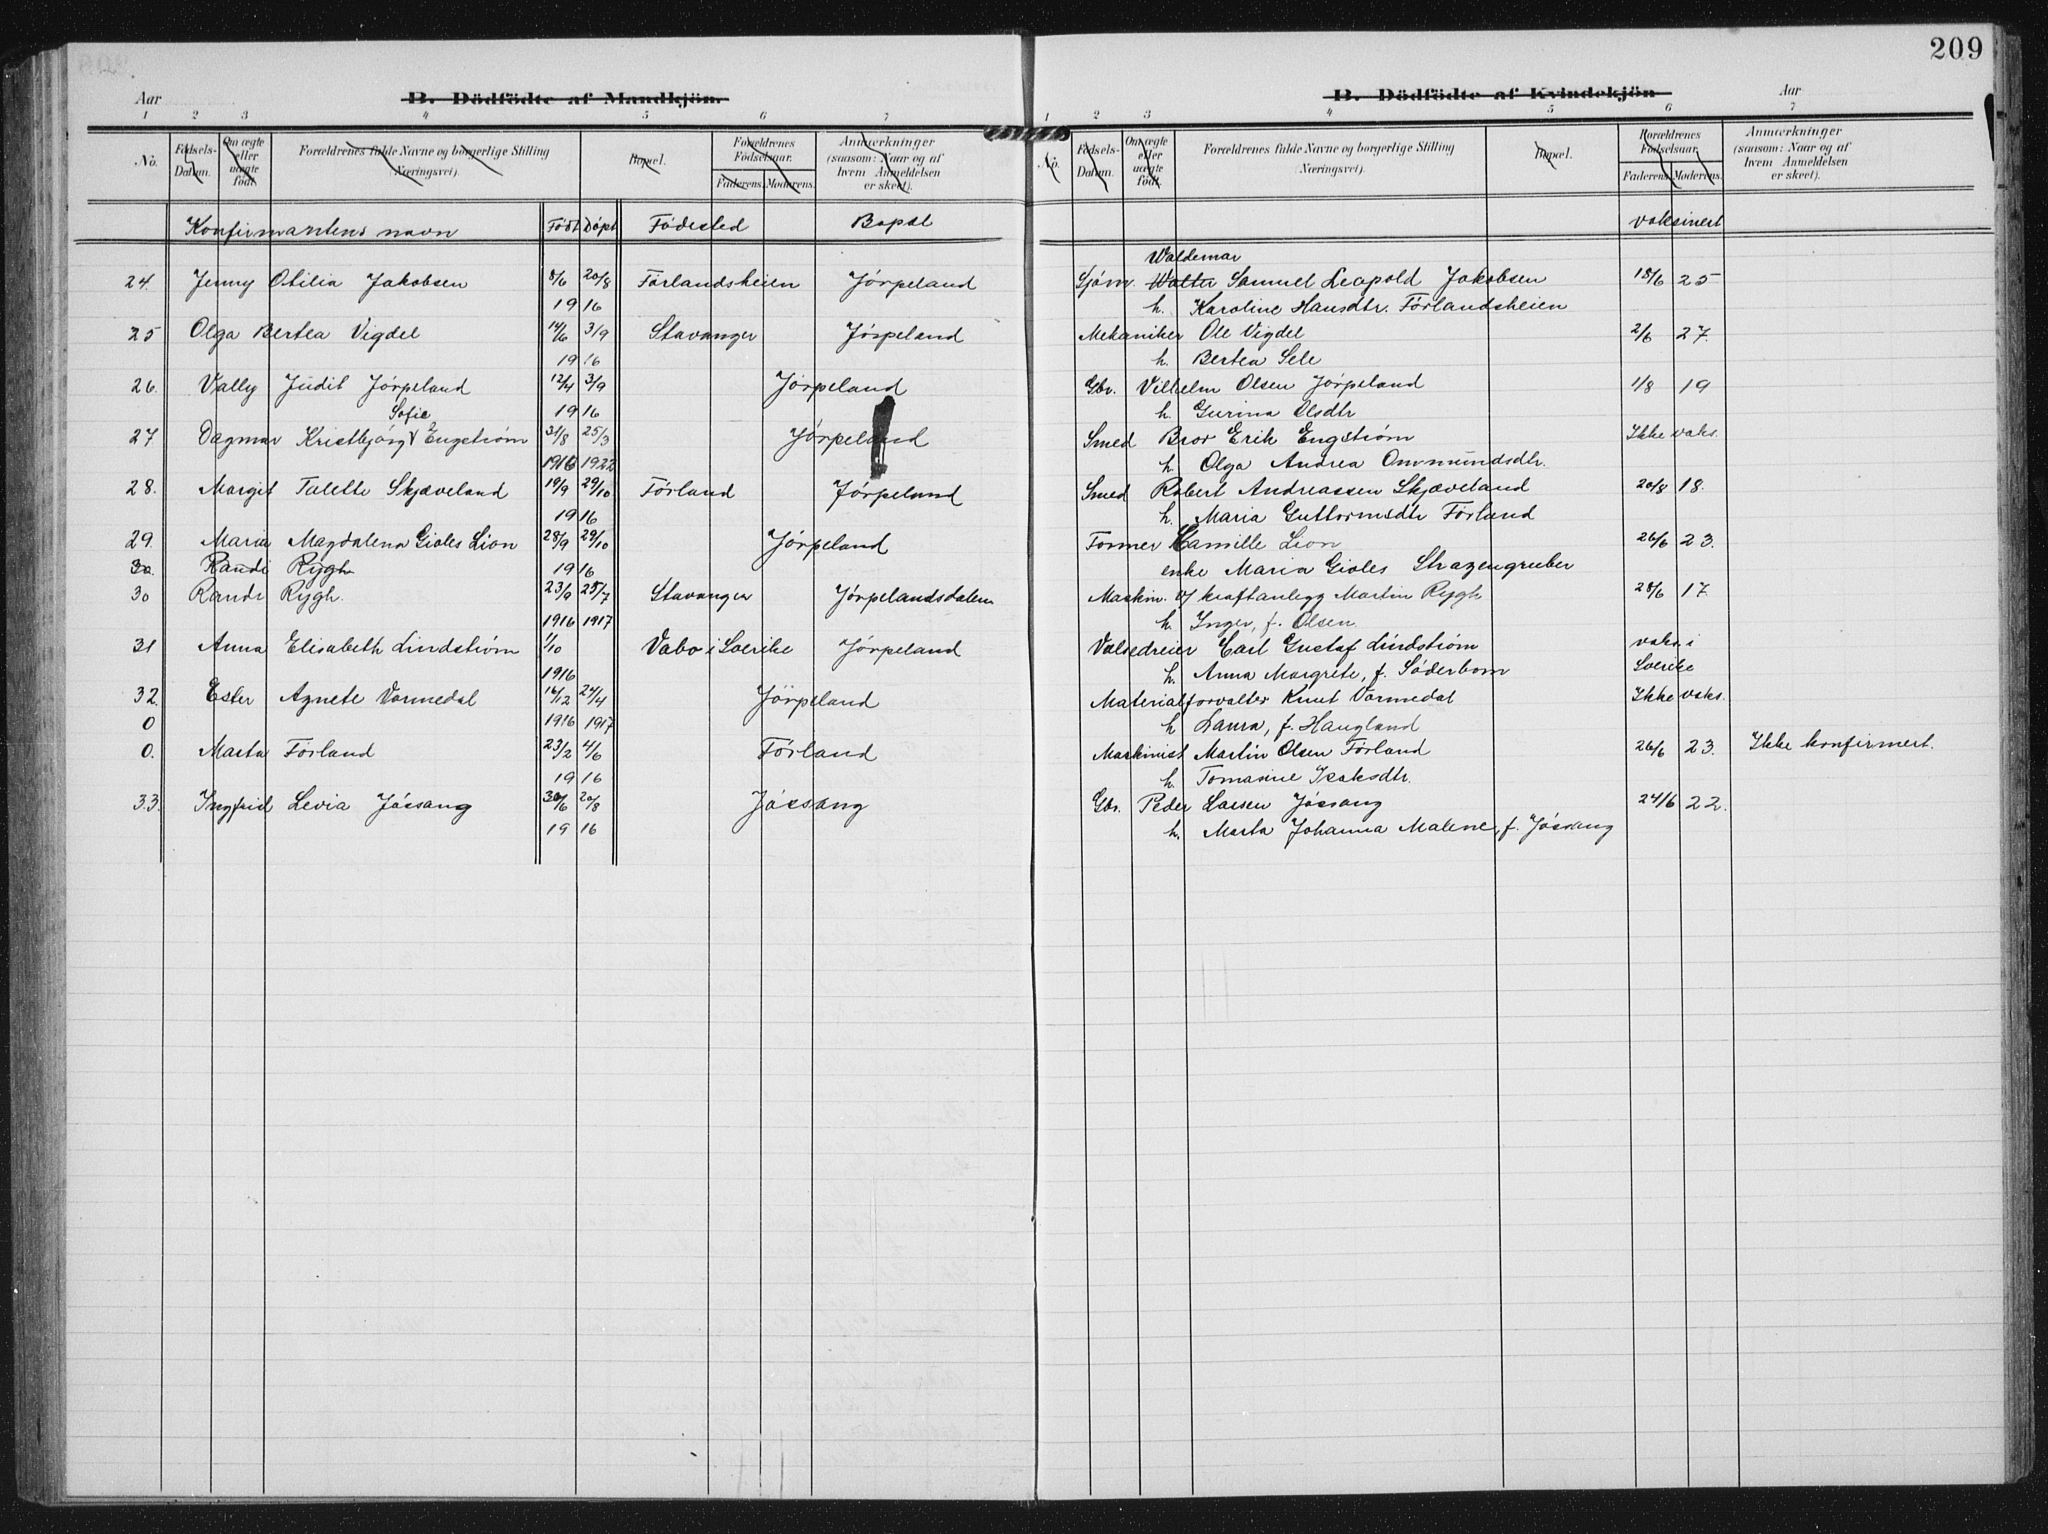 209
Aar B. Dödfödte af Mandkjön. B. Dödfödte af Kvindekjön Aar
1 2 3 4 5 6 7 1 2 3 4 5 6 7
No. Födsels-Datum. Om ægte eller uægte födt. Forældrenes fulde Navne og borgerlige Stilling (Næringsvei). Bopæl. Forældrenes Födselsaar. Faderens. Moderens. Anmærkninger (saasom: Naar og af hvem Anmeldelsen er skeet).
No. Födsels-Datum. Om ægte eller uægte födt. Forældrenes fulde Navne og borgerlige Stilling (Næringsvei). Bopæl. Forældrenes Födselsaar. Faderens. Moderens. Anmærkninger (saasom: Naar og af hvem Anmeldelsen er skeet).
Konfirmantens navn Født Døpt Fødested Bopæl vaksinert
Waldemar
24. Jenny Otilia Jakobsen 8/6 20/8 Førlandsheien Jørpeland Sjøm. Walter Samuel Leopold Jakobsen 18/6 25
19 16 h. Karoline Hansdtr. Førlandsheien
25 Olga Bertea Vigdel 14/6 3/9 Stavanger Jørpeland Mekaniker Ole Vigdel 2/6 27.
19 16 h. Bertea Sele
26. Vally Judit Jørpeland 12/4 3/9 Jørpeland Gbr. Vilhelm Olsen Jørpeland 1/8 19
Sofie 19 16 h. Gurina Olsdtr
27 Dagmar Kristbjørg V Engstrøm 31/8 25/3 Jørpeland Smed Bror Erik Engstrøm Ikke vaks.
1916 1922 h. Olga Andrea Ommundsdtr.
28. Margit Talette Skjæveland 19/9 29/10 Førland Jørpeland Smed Robert Andreassen Skjæveland 20/8 18.
19 16 h. Maria Guttormsdtr Førland
29. Maria Magdalena Gioles Lion 28/9 29/10 Jørpeland Former Camille Lion 26/6 23.
30. Randi Rygh 19 16 enke Maria Gioles Strazengruber
30 Randi Rygh. 23/9 25/7 Stavanger Jørpelandsdalen Maskin. v/ kraftanlegg Martin Rygh 28/6 17.
1916 1917 h. Inger, f. Olsen
31 Anna Elisabeth Lindstrøm 1/10 Vabo i Sverike Jørpeland Valsedreier Carl Gustaf Lindstrøm vaks. i
1916 h. Anna Margrete, f. Søderbom Sverike
32. Ester Agnete Varmedal 16/12 24/4 Jørpeland Materialforvalter Knut Varmedal Ikke vaks.
0 1916 1917 h Laura, f. Haugland
0. Marta Førland 23/2 4/6 Førland Maskinist Martin Olsen Førland 26/6 23. Ikke konfirmert.
19 16 h. Tomasine Isaksdtr.
33. Ingfrid Levia Jøssang 30/6 20/8 Jøssang Gbr. Peder Larsen Jøssang 24/6 22.
19 16 h. Marta Johanna Malene, f. Jøssang